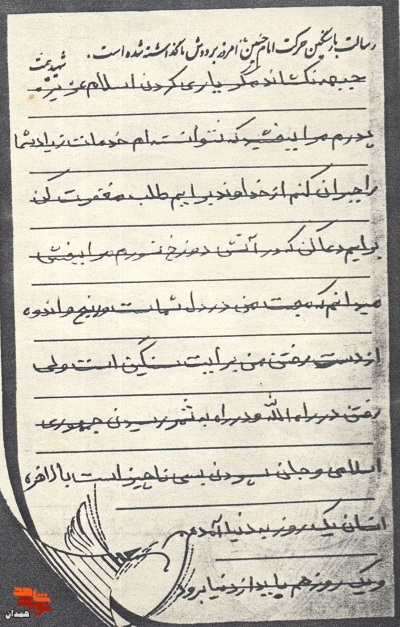 رسالت بار سنگین حرکت امام حسین(ع) امروز بر دوش ما گذاشته شده است.
شهید بهشتی
جبهه نکشانده مگر یاری کردن اسلام عزیز
پدرم مرا ببخشید که نتوانسته‌ام خدمات زیاد شما
را جبران کنم از خداوند برایم طلب مغفرت کن
برایم دعا کن که در آتش دوزخ نسوزم مرا ببخش
میدانم که محبت من در دل شماست و رنج و اندوه
از دست رفتن من برایت سنگین است ولی
رفتن در راه الله و در راه به ثمر رسیدن جمهوری
اسلامی و جان سپردن بسی ناچیز است بالاخره
انسان یک روز به دنیا آمده
و یک روز هم باید از دنیا برود
شاهد
نوید
همدان